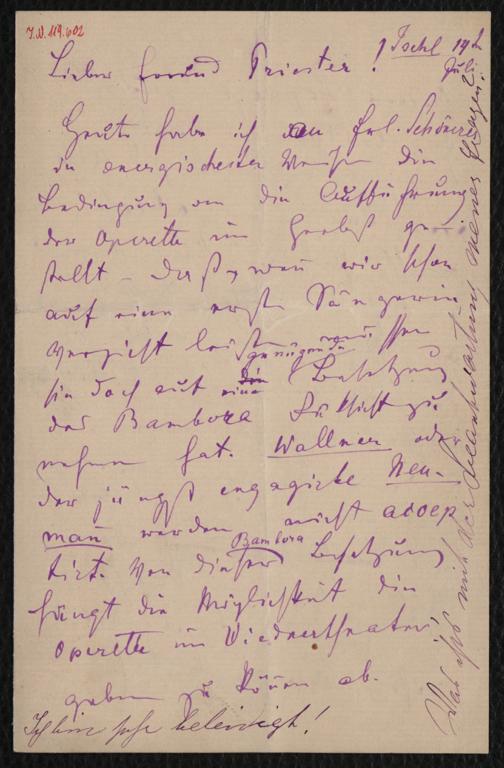 I.N. 119.602
Ischl 14t
Juli
Lieber Freund Priester!
Heute habe ich an Frl. Schönerer
in energischester Weise die
Bedingung an die Aufführung
der Operette im Herbst ge-
stellt – daß, wenn wir schon
auf eine erste Sängerin
Verzicht leisten müssen
sie doch auf eine genügende Besetzung
der Bambora Rücksicht zu
nehmen hat. Wallner oder
der jüngst engagirte Neu-
mañ werden nicht accep
tirt. Von dieser Bambora Besetzung
hängt die Möglichkeit die
Operette im Wiednertheater
geben zu können ab.
Ich bin sehr beleidigt!
Was ists mit der Beantwortung meines